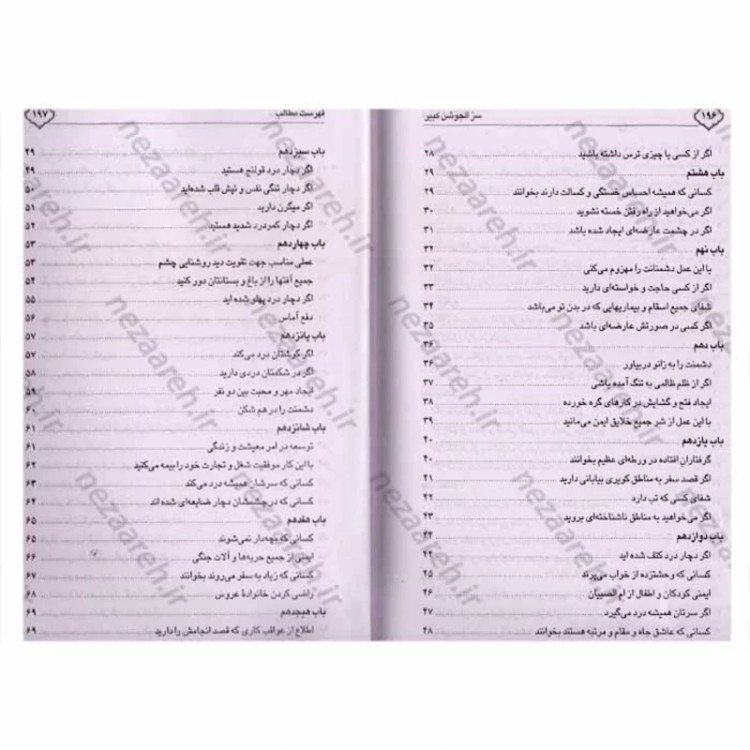 ۱۹۶ سرّ الجوشن کبیر
اگر از کسی یا چیزی ترس داشته باشید ۲۸
باب هشتم ۲۹
کسانی که همیشه احساس خستگی و کسالت دارند بخوانند ۲۹
اگر می‌خواهید از راه رفتن خسته نشوید ۳۰
اگر در چشمت عارضه‌ای ایجاد شده باشد ۳۱
باب نهم ۳۲
با این عمل دشمنانت را مهزوم می‌کنی ۳۲
اگر از کسی حاجت و خواسته‌ای دارید ۳۳
شفای جمیع اسقام و بیماریهایی که در بدن تو می‌باشد ۳۴
اگر کسی در صورتش عارضه‌ای باشد ۳۵
باب دهم ۳۶
دشمنت را به زانو دربیاور ۳۶
اگر از ظلم ظالمی به تنگ آمده باشی ۳۷
ایجاد فتح و گشایش در کارهای گره خورده ۳۸
با این عمل از شر جمیع خلایق ایمن می‌مانید ۳۹
باب یازدهم ۴۰
گرفتاران افتاده در ورطه‌ای عظیم بخوانند ۴۰
اگر قصد سفر به مناطق کویری بیابانی دارید ۴۱
شفای کسی که تب دارد ۴۲
اگر می‌خواهید به مناطق ناشناخته‌ای بروید ۴۳
باب دوازدهم ۴۴
اگر دچار درد کتف شده اید ۴۴
کسانی که وحشتزده از خواب می‌پرند ۴۵
ایمنی کودکان و اطفال از ام الصبیان ۴۶
اگر سرتان همیشه درد می‌گیرد ۴۷
کسانی که عاشق جاه و مقام و مرتبه هستند بخوانند ۴۸
فهرست مطالب ۱۹۷
باب سیزدهم ۴۹
اگر دچار درد قولنج هستید ۴۹
اگر دچار تنگی نفس و تپش قلب شده‌اید ۵۰
اگر میگرن دارید ۵۱
اگر دچار کمردرد شدید هستید ۵۲
باب چهاردهم ۵۳
عملی مناسب جهت تقویت دید روشنایی چشم ۵۳
جمیع آفتها را از باغ و بستانتان دور کنید ۵۴
اگر دچار درد پهلو شده اید ۵۵
دفع آماس ۵۶
باب پانزدهم ۵۷
اگر گوشتان درد می‌کند ۵۷
اگر در شکمتان دردی دارید ۵۸
ایجاد مهر و محبت بین دو نفر ۵۹
دشمنت را در هم شکن ۶۰
باب شانزدهم ۶۱
توسعه در امر معیشت و زندگی ۶۱
با این کار موفقیت شغل و تجارت خود را بیمه می‌کنید ۶۲
کسانی که سرشان همیشه درد می‌کند ۶۳
کسانی که درچشمشان دچار ضایعه‌ای شده اند ۶۴
باب هفدهم ۶۵
کسانی که بچه‌دار نمی‌شوند ۶۵
ایمنی از جمیع حربه‌ها و آلات جنگی ۶۶
کسانی که زیاد به سفر می‌روند بخوانند ۶۷
راضی کردن خانوادهٔ عروس ۶۸
باب هیجدهم ۶۹
اطلاع از عواقب کاری که قصد انجامش را دارید ۶۹
nezaareh.ir
nezaareh.ir
nezaareh.ir
nezaareh.ir
nezaareh.ir
nezaareh.ir
nezaareh.ir
nezaareh.ir
nezaareh.ir
nezaareh.ir
nezaareh.ir
nezaareh.ir